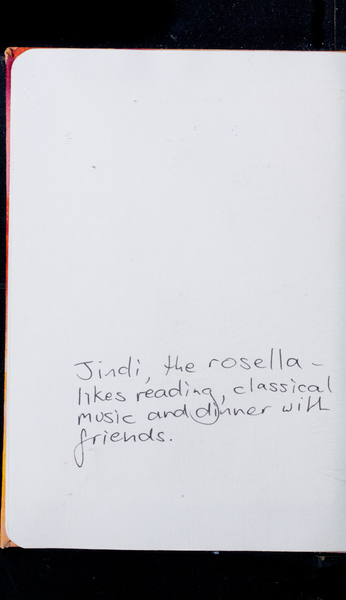 Jindi, the rosella -
likes reading, classical
music and dinner with
friends.